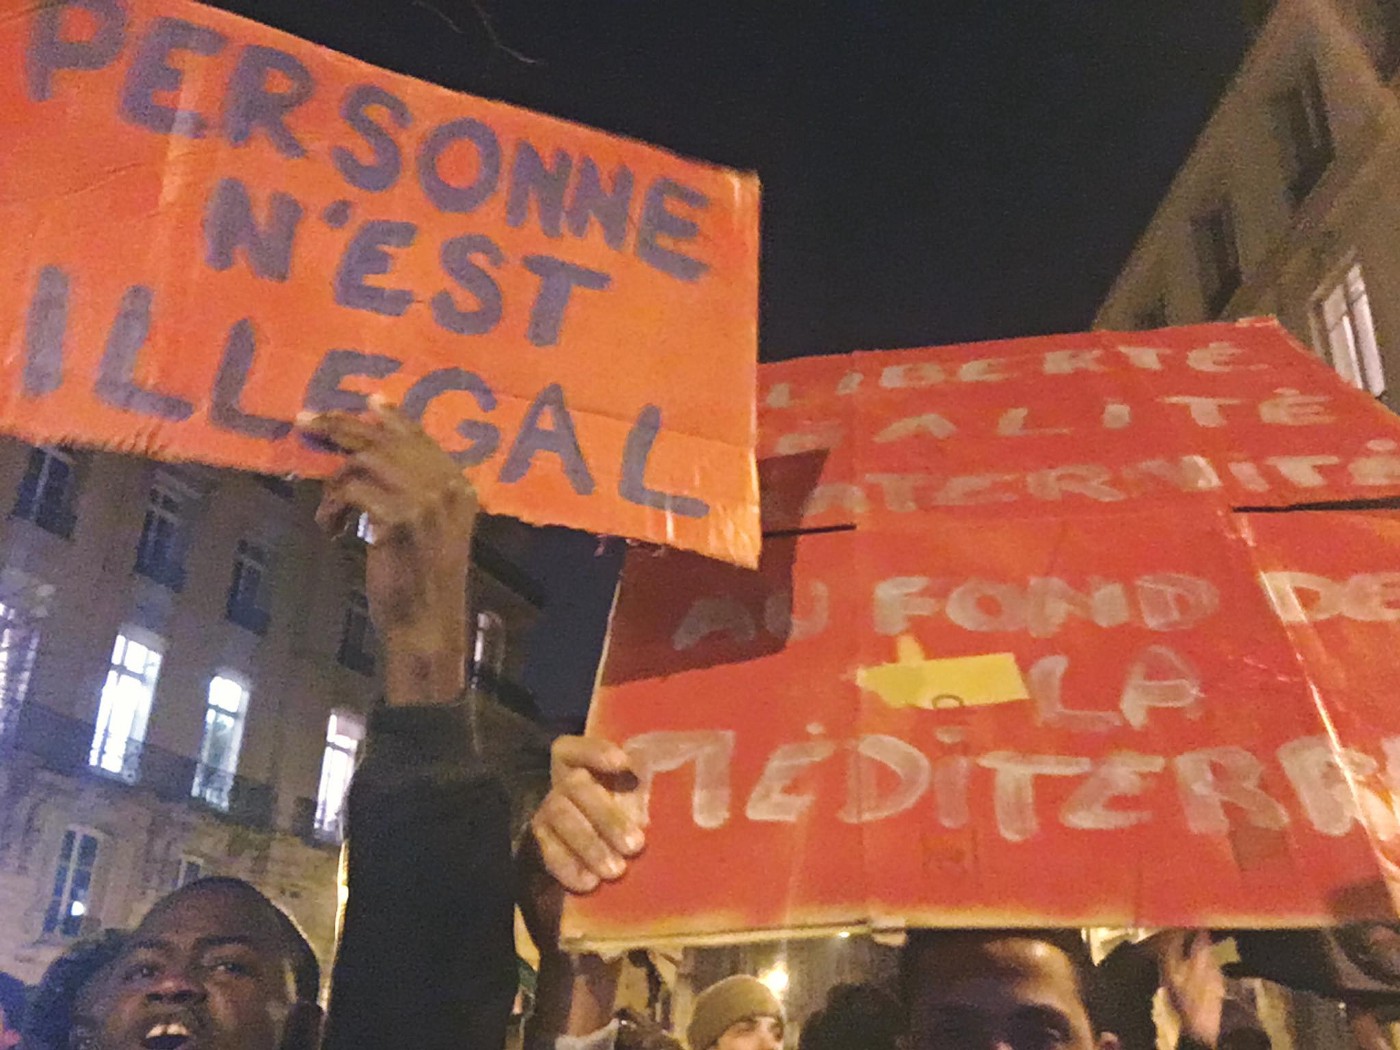 PERSONNE
N'EST
ILLEGAL
LIBERTÉ
ALITÉ
ATERNITÉ
AU FOND DE
LA
MÉDITERR